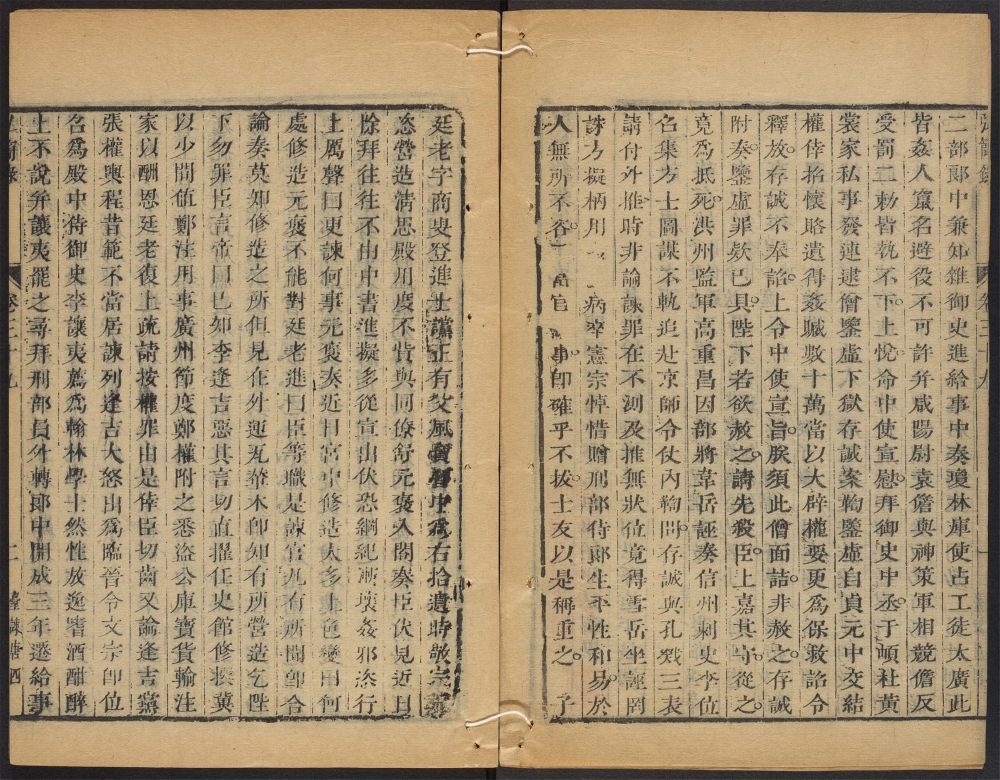 弘簡錄　卷三十九
二部郎中兼知雜御史進給事中奏瓊林庫使占工徒太廣此
皆姦人竄名避役不可許并咸陽尉袁儋與神策軍相競儋反
受罰二勅皆執不下上悅命中使宣慰拜御史中丞于頔杜黃
裳家私事發連逮僧鑒虛下獄存誠案鞫鑒虛自貞元中交結
權倖招懷賂遺得姦贓數十萬當以大辟權要更爲保救詔令
釋放存誠不奉詔上令中使宣旨朕須此僧面詰非赦之存誠
附奏鑒虛罪欵已具陛下若欲赦之請先殺臣上嘉其守從之
竟爲抵死洪州監軍高重昌因部將韋岳誣奏信州刺史李位
名集方士圖謀不軌追赴京師令仗內鞫問存誠與孔戣三表
請付外推時非論諫罪在不測及推無狀位竟得雪岳坐誣罔
誅方擬柄用　病卒憲宗悼惜贈刑部侍郎生平性和易於
人無所不容　當官　事卽確乎不拔士友以是稱重之　子
廷老字商叟登進士讜正有父風寶曆中爲右拾遺時敬宗荒
恣營造清思殿用度不貲與同僚舒元褒入閤奏臣伏見近日
除拜往往不由中書進擬多從宣出伏恐綱紀漸壞姦邪恣行
上厲聲曰更諫何事元褒奏近日宮中修造太多上色變曰何
處修造元褒不能對廷老進曰臣等職是諫官凡有所聞卽合
論奏莫知修造之所但見在外運瓦搬木卽知有所營造乞陛
下勿罪臣言帝曰已知李逢吉惡其言切直擢任史館修撰冀
以少間値鄭注用事廣州節度鄭權附之悉盜公庫寶貨輸注
家以酬恩廷老復上疏請按權罪由是倖臣切齒又論逢吉黨
張權輿程昔範不當居諫列逢吉大怒出爲臨晉令文宗卽位
名爲殿中侍御史李讓夷薦爲翰林學士然性放逸嗜酒酣醉
上不說并讓夷罷之尋拜刑部員外轉郎中開成三年遷給事
弘簡錄　卷三十九　二　臺諫　唐四